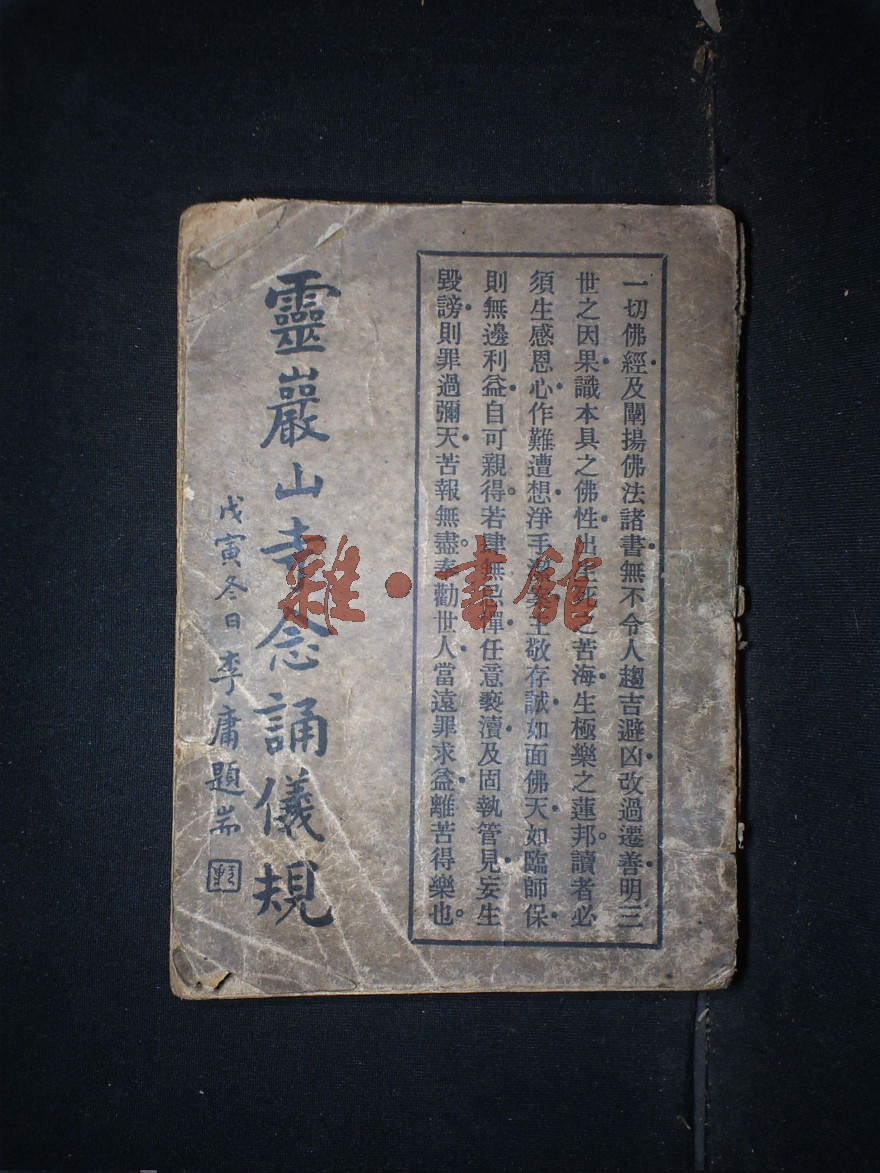 一切佛經及闡揚佛法諸書無不令人趨吉避凶改過遷善明三
世之因果識本具之佛性出生死之苦海生極樂之蓮邦讀者必
須生感恩心作難遭想淨手潔案主敬存誠如面佛天如臨師保
則無邊利益自可親得若肆無忌憚任意褻瀆及固執管見妄生
毀謗則罪過彌天苦報無盡奉勸世人當遠罪求益離苦得樂也
靈巖山寺念誦儀規
戊寅冬日李庸題耑
雜·書館